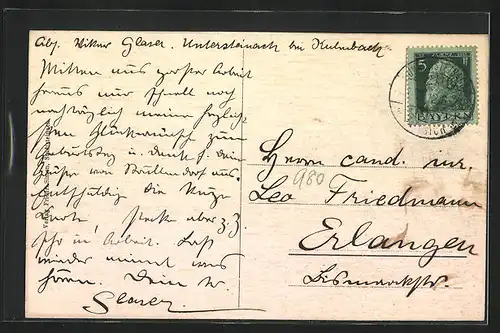 Abs. Viktor Glaser. Untersteinach bei Kulmbach
Mitten aus großer Arbeit
heraus nur schnell noch
nachträglich meine herzlich-
sten Glückwünsche zum
Geburtstag u. Dank f. Dein
Entschuldige die kurze
Karte, stecke aber z. Z.
sehr in Arbeit. Laß
wieder einmal was
hören. Dein tr.
Glaser.
5
BAYERN
Herrn cand. iur.
980
Leo Friedmann
Erlangen
Bismarckstr.